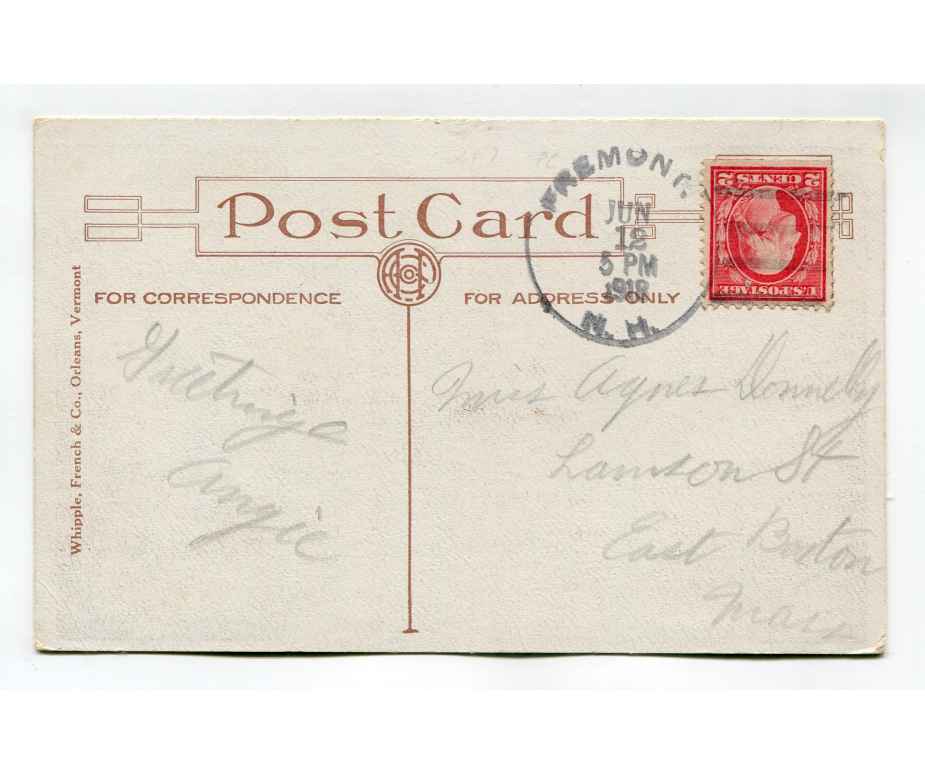 Post Card
FOR CORRESPONDENCE
FOR ADDRESS ONLY
Whipple, French & Co., Orleans, Vermont
FREMONT,
JUN
12
5 PM
1918
N. H.
U.S. POSTAGE
2 CENTS 2
Greetings
Angie
Miss Agnes Donnelly
Lamson St
East Boston
Mass